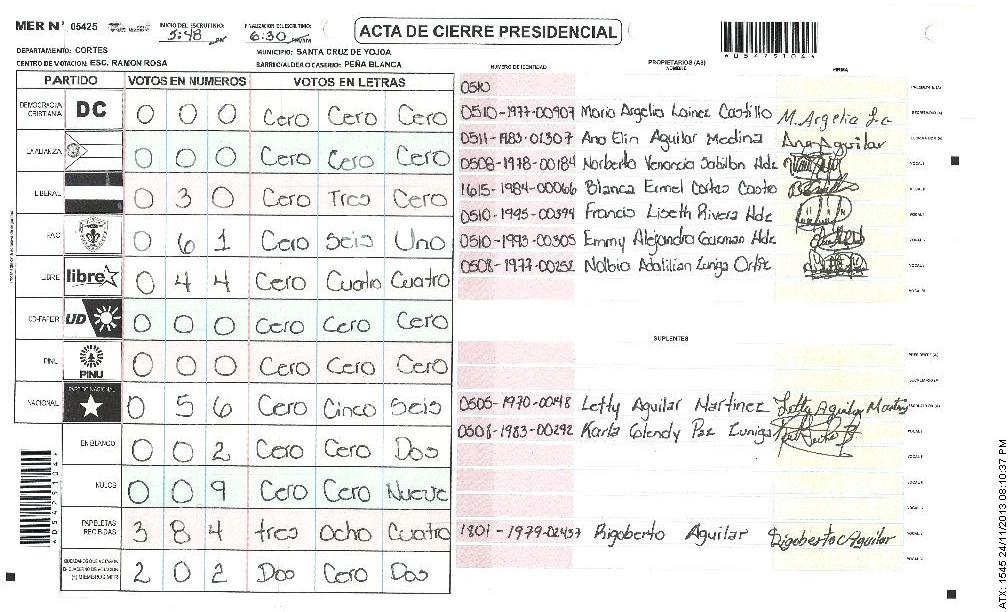 MER Nº 05425 INICIO DEL ESCRUTINIO: 5:48 FINALIZACION DEL ESCRUTINIO: 6:30 ACTA DE CIERRE PRESIDENCIAL
DEPARTAMENTO: CORTES MUNICIPIO: SANTA CRUZ DE YOJOA
CENTRO DE VOTACION: ESC. RAMON ROSA BARRIO/ALDEA O CASERIO: PEÑA BLANCA
PARTIDO VOTOS EN NUMEROS VOTOS EN LETRAS
DEMOCRACIA CRISTIANA DC 0 0 0 Cero Cero Cero
LA ALIANZA 0 0 0 Cero Cero Cero
LIBERAL 0 3 0 Cero Tres Cero
PAC 0 6 1 Cero Seis Uno
LIBRE libre 0 4 4 Cero Cuatro Cuatro
UD-FAPER UD 0 0 0 Cero Cero Cero
PINU PINU 0 0 0 Cero Cero Cero
NACIONAL PARTIDO NACIONAL 0 5 6 Cero Cinco Seis
EN BLANCO 0 0 2 Cero Cero Dos
NULOS 0 0 9 Cero Cero Nueve
PAPELETAS RECIBIDAS 3 8 4 tres Ocho Cuatro
2 0 2 Dos Cero Dos
NUMERO DE IDENTIDAD PROPIETARIOS (AS) NOMBRE FIRMA
0510
0510-1977-00907 Mario Argelio Lainez Castillo
0511-1983-01307 Ana Elin Aguilar Medina Ana Aguilar
0508-1978-00184 Norberto Venancio Sabillon Hdz
1615-1984-00066 Blanca Ermel Cortes Castro
0510-1995-00394 Francis Liseth Rivera Hdz
0510-1993-00305 Emmy Alejandra Guzman Hdz
0508-1977-00252 Nolbia Adalilian Zuniga Ortiz
SUPLENTES
0505-1970-00148 Letty Aguilar Martinez Letty Aguilar Martinez
0508-1983-00292 Karla Glendy Paz Zuniga
1801-1979-02457 Rigoberto Aguilar Rigoberto Aguilar
ATX: 1545 24/11/2013 08:10:37 PM